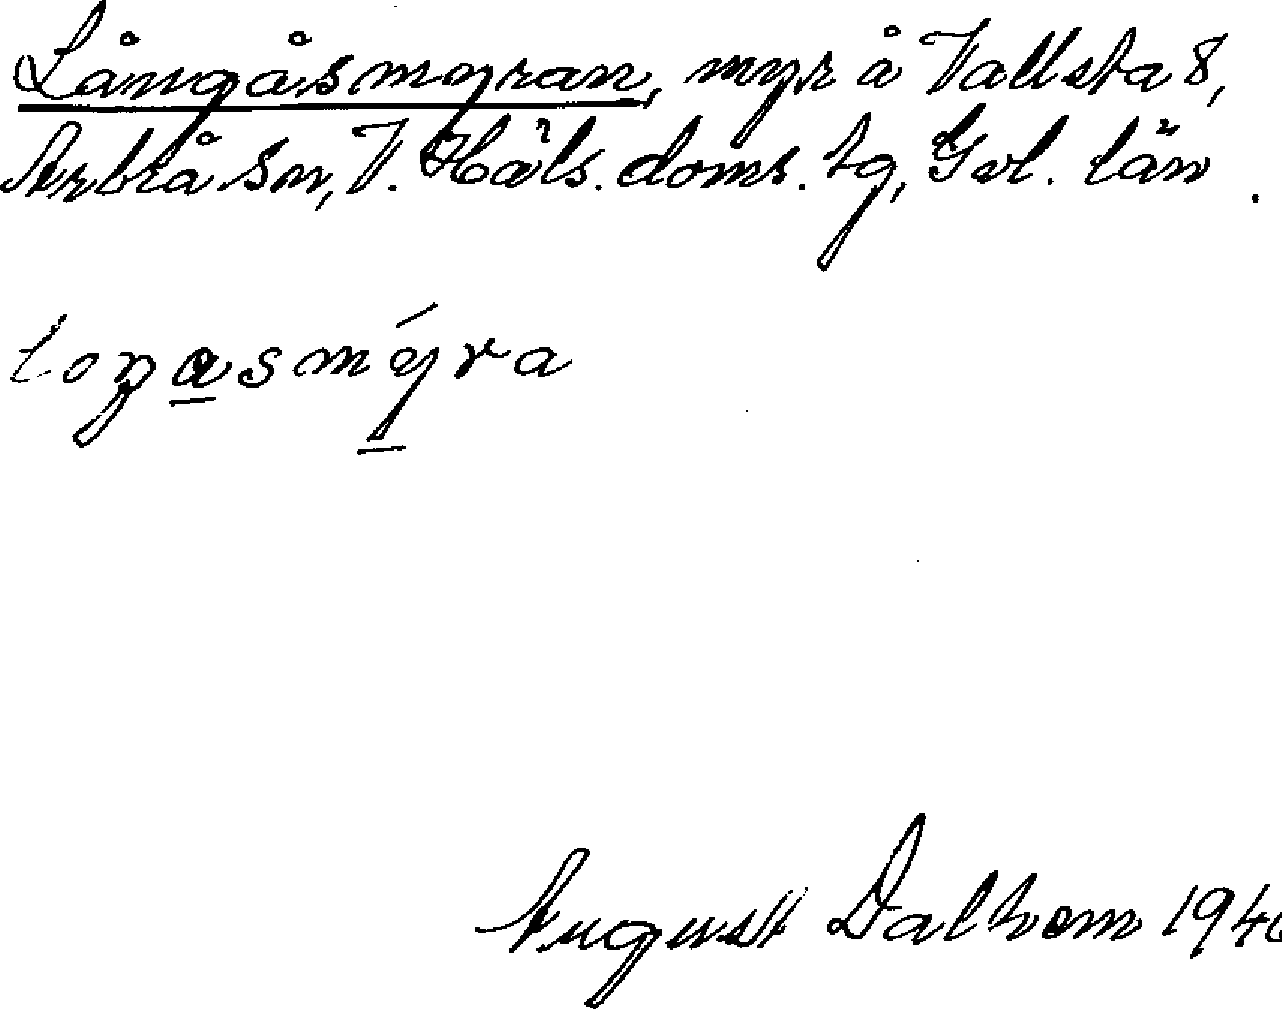 Långåsmyran, myr å Vallsta 8,
Arbrå sn, V. Häls. doms. tg, Gvl. län.
loŋasmýra
August Dalhem